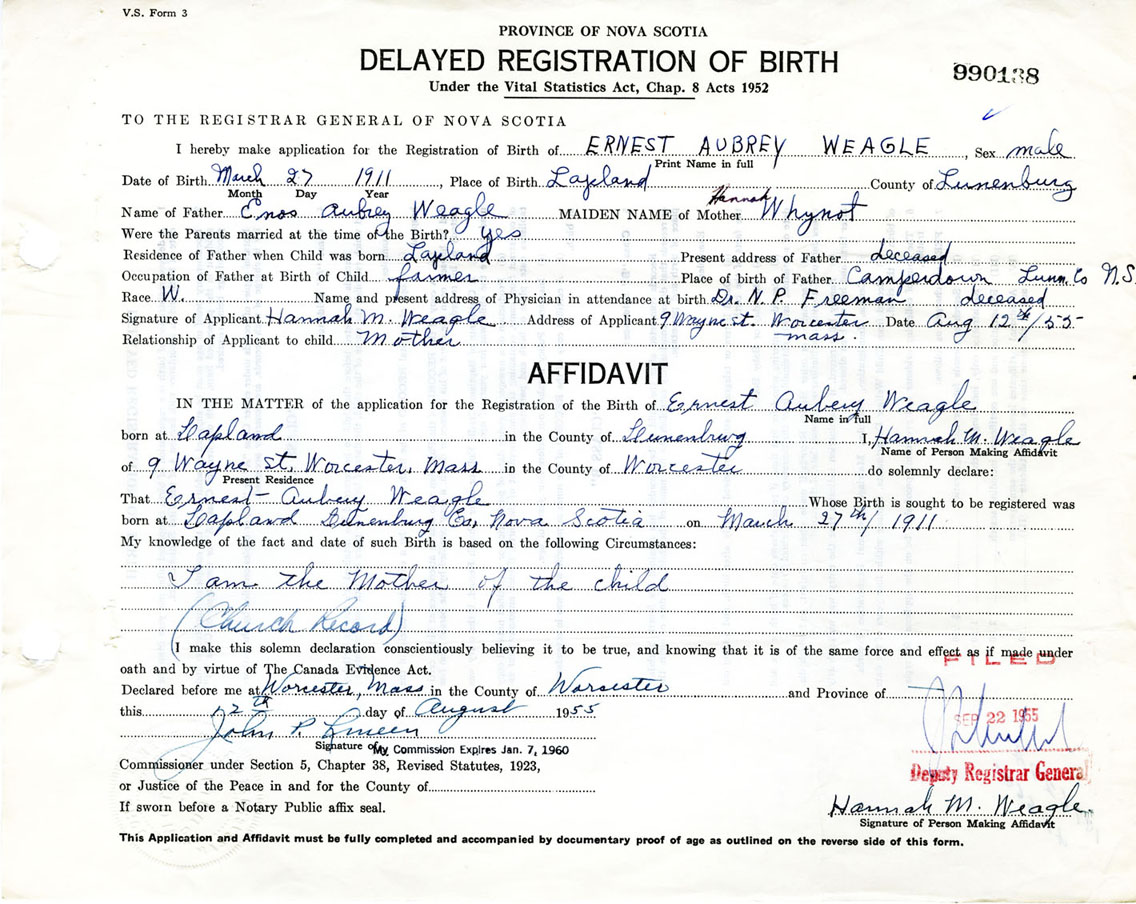 V.S. Form 3
PROVINCE OF NOVA SCOTIA
DELAYED REGISTRATION OF BIRTH
990138
Under the Vital Statistics Act, Chap. 8 Acts 1952
TO THE REGISTRAR GENERAL OF NOVA SCOTIA
I hereby make application for the Registration of Birth of ERNEST AUBREY WEAGLE, Sex male
Print Name in full
Date of Birth March 27 1911, Place of Birth Lapland County of Lunenburg
Month Day Year
Name of Father Enos Aubrey Weagle MAIDEN NAME of Mother Hannah Whynot
Were the Parents married at the time of the Birth? yes
Residence of Father when Child was born Lapland Present address of Father deceased
Occupation of Father at Birth of Child farmer Place of birth of Father Camperdown Lunn. Co N.S.
Race W. Name and present address of Physician in attendance at birth Dr. N. P. Freeman deceased
Signature of Applicant Hannah M. Weagle Address of Applicant 9 Wayne st. Worcester Date Aug 12th/55
Relationship of Applicant to child Mother mass.
AFFIDAVIT
IN THE MATTER of the application for the Registration of the Birth of Ernest Aubery Weagle
Name in full
born at Lapland in the County of Lunenburg I, Hannah M. Weagle
Name of Person Making Affidavit
of 9 Wayne st, Worcester, Mass in the County of Worcester do solemnly declare:
Present Residence
That Ernest Aubery Weagle Whose Birth is sought to be registered was
born at Lapland Lunenburg Co, Nova Scotia on March 27th/ 1911
My knowledge of the fact and date of such Birth is based on the following Circumstances:
I am the Mother of the child
(Church Record)
I make this solemn declaration conscientiously believing it to be true, and knowing that it is of the same force and effect as if made under
FILED
oath and by virtue of The Canada Evidence Act.
Declared before me at Worcester, Mass in the County of Worcester and Province of
this 12th day of August 1955
SEP 22 1955
John P.
Signature of My Commission Expires Jan. 7, 1960
Commissioner under Section 5, Chapter 38, Revised Statutes, 1923,
Deputy Registrar General
or Justice of the Peace in and for the County of
Hannah M. Weagle
If sworn before a Notary Public affix seal.
Signature of Person Making Affidavit
This Application and Affidavit must be fully completed and accompanied by documentary proof of age as outlined on the reverse side of this form.